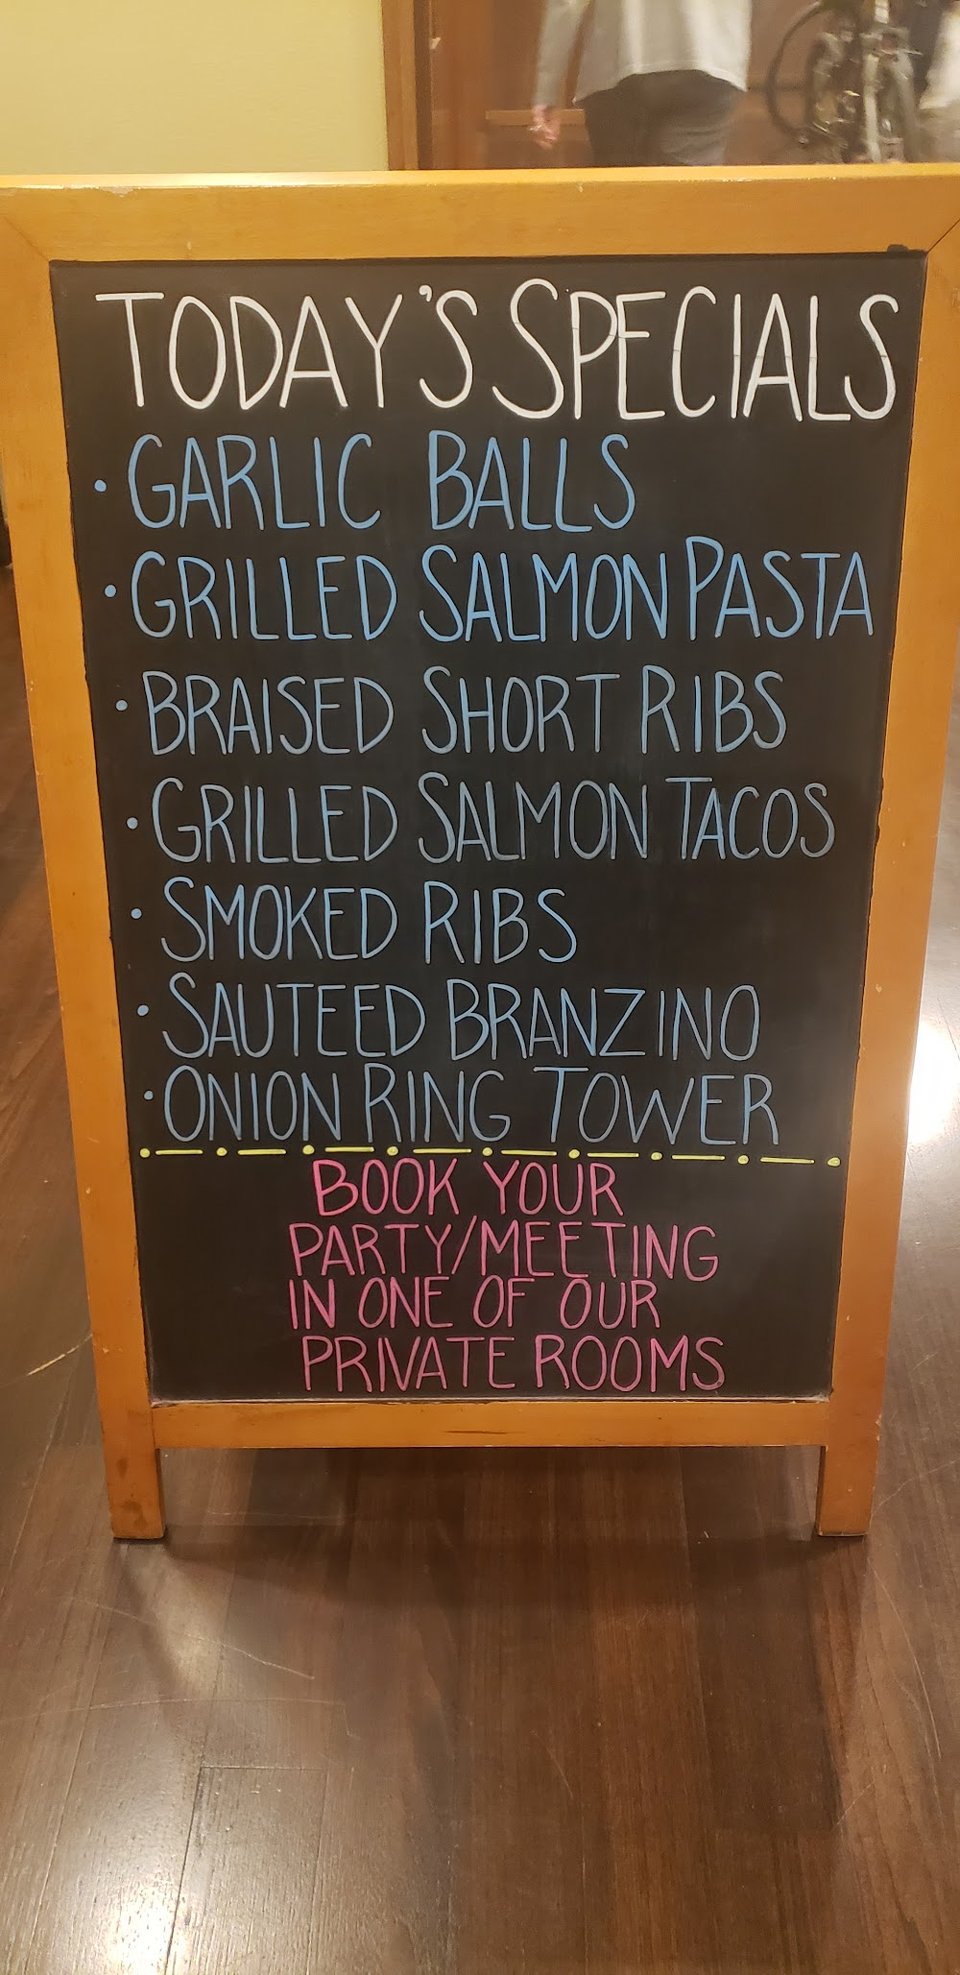 TODAY'S SPECIALS
• GARLIC BALLS
• GRILLED SALMON PASTA
• BRAISED SHORT RIBS
• GRILLED SALMON TACOS
• SMOKED RIBS
• SAUTEED BRANZINO
• ONION RING TOWER
BOOK YOUR
PARTY/MEETING
IN ONE OF OUR
PRIVATE ROOMS